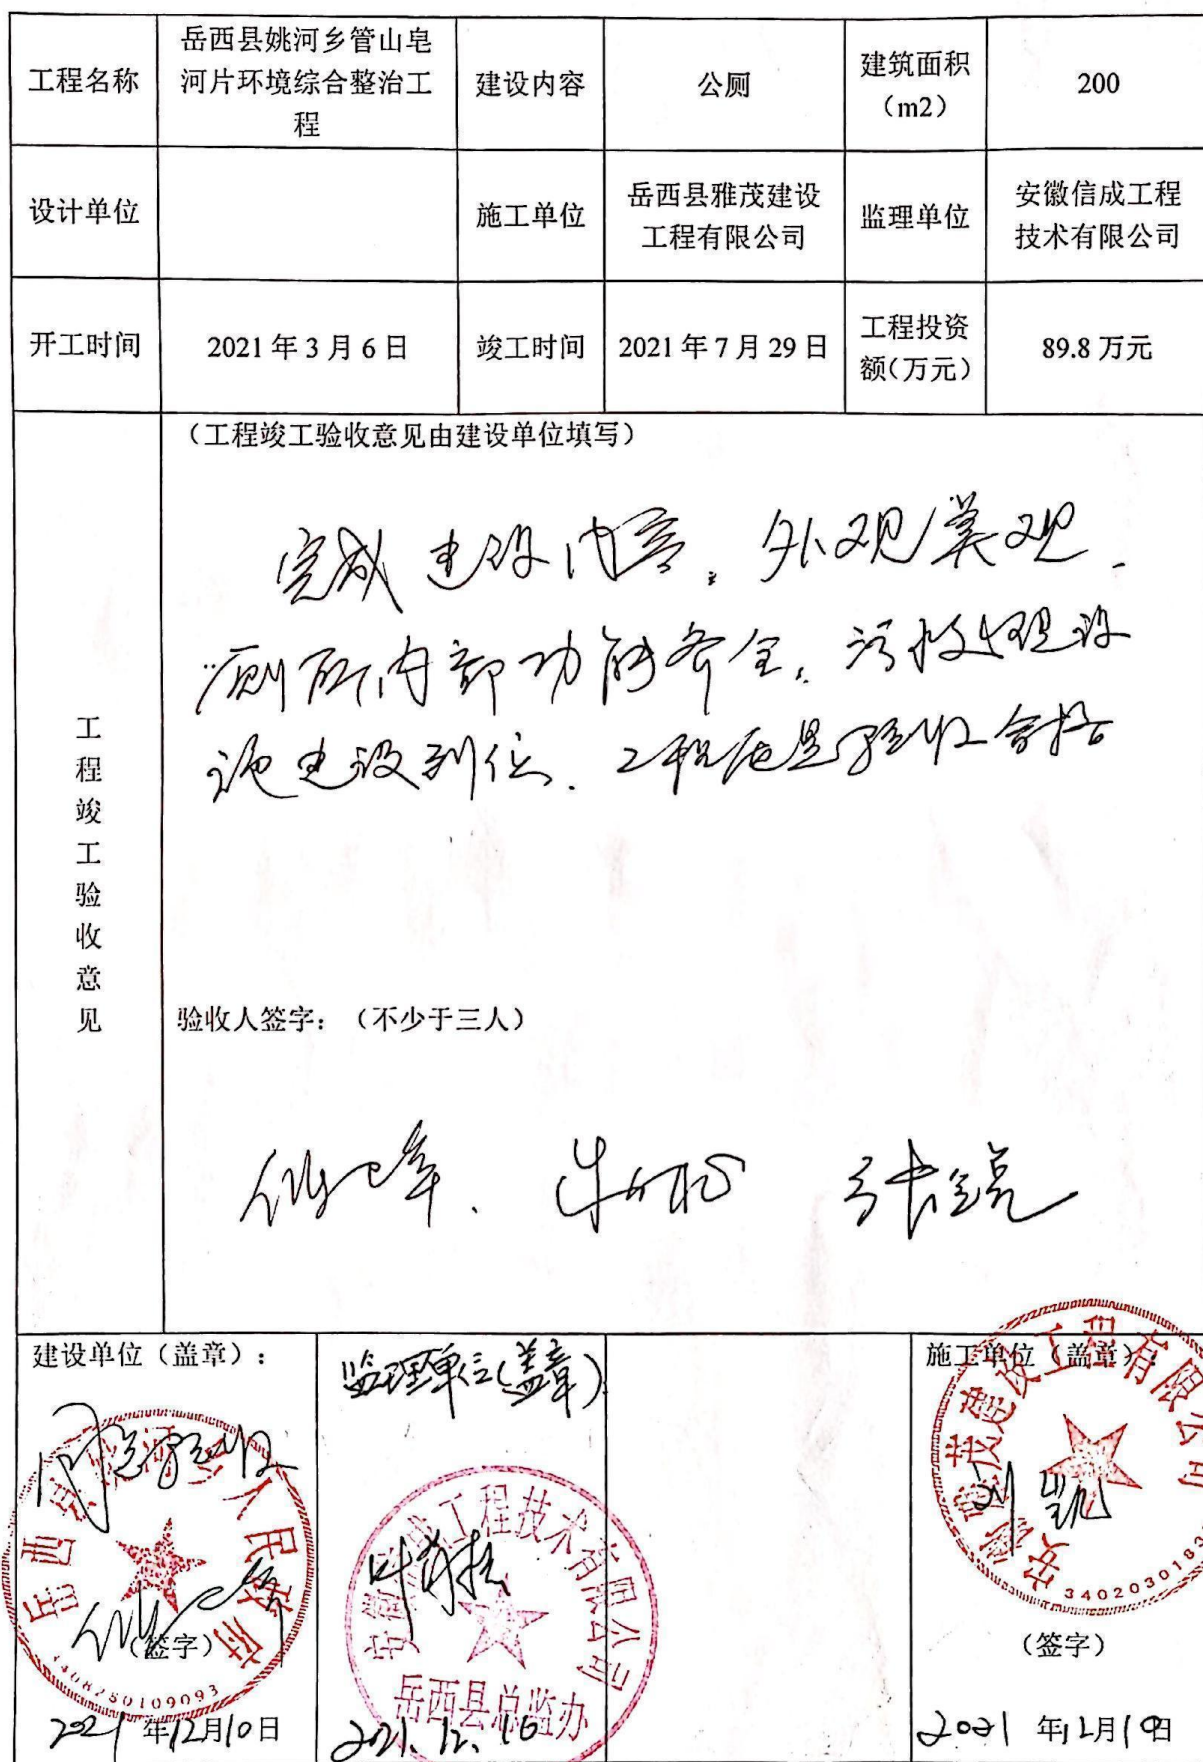 工程名称
岳西县姚河乡管山皂
河片环境综合整治工
程
建设内容
公厕
建筑面积
（m2）
200
设计单位
施工单位
岳西县雅茂建设
工程有限公司
监理单位
安徽信成工程
技术有限公司
开工时间
2021年3月6日
竣工时间
2021年7月29日
工程投资
额(万元)
89.8万元
工程竣工验收意见
（工程竣工验收意见由建设单位填写）
完成建设内容，外观美观，
厕所内部功能齐全，污水处理设
施建设到位，工程质量验收合格
验收人签字：（不少于三人）
建设单位（盖章）：
同意验收
岳西县姚河乡人民政府
（签字）
2021年12月10日
监理单位(盖章)
工程技术有限公司
岳西县总监办
2021.12.10
施工单位（盖章）：
茂建设工程有限公司
刘凯
34020301
（签字）
2021年12月10日